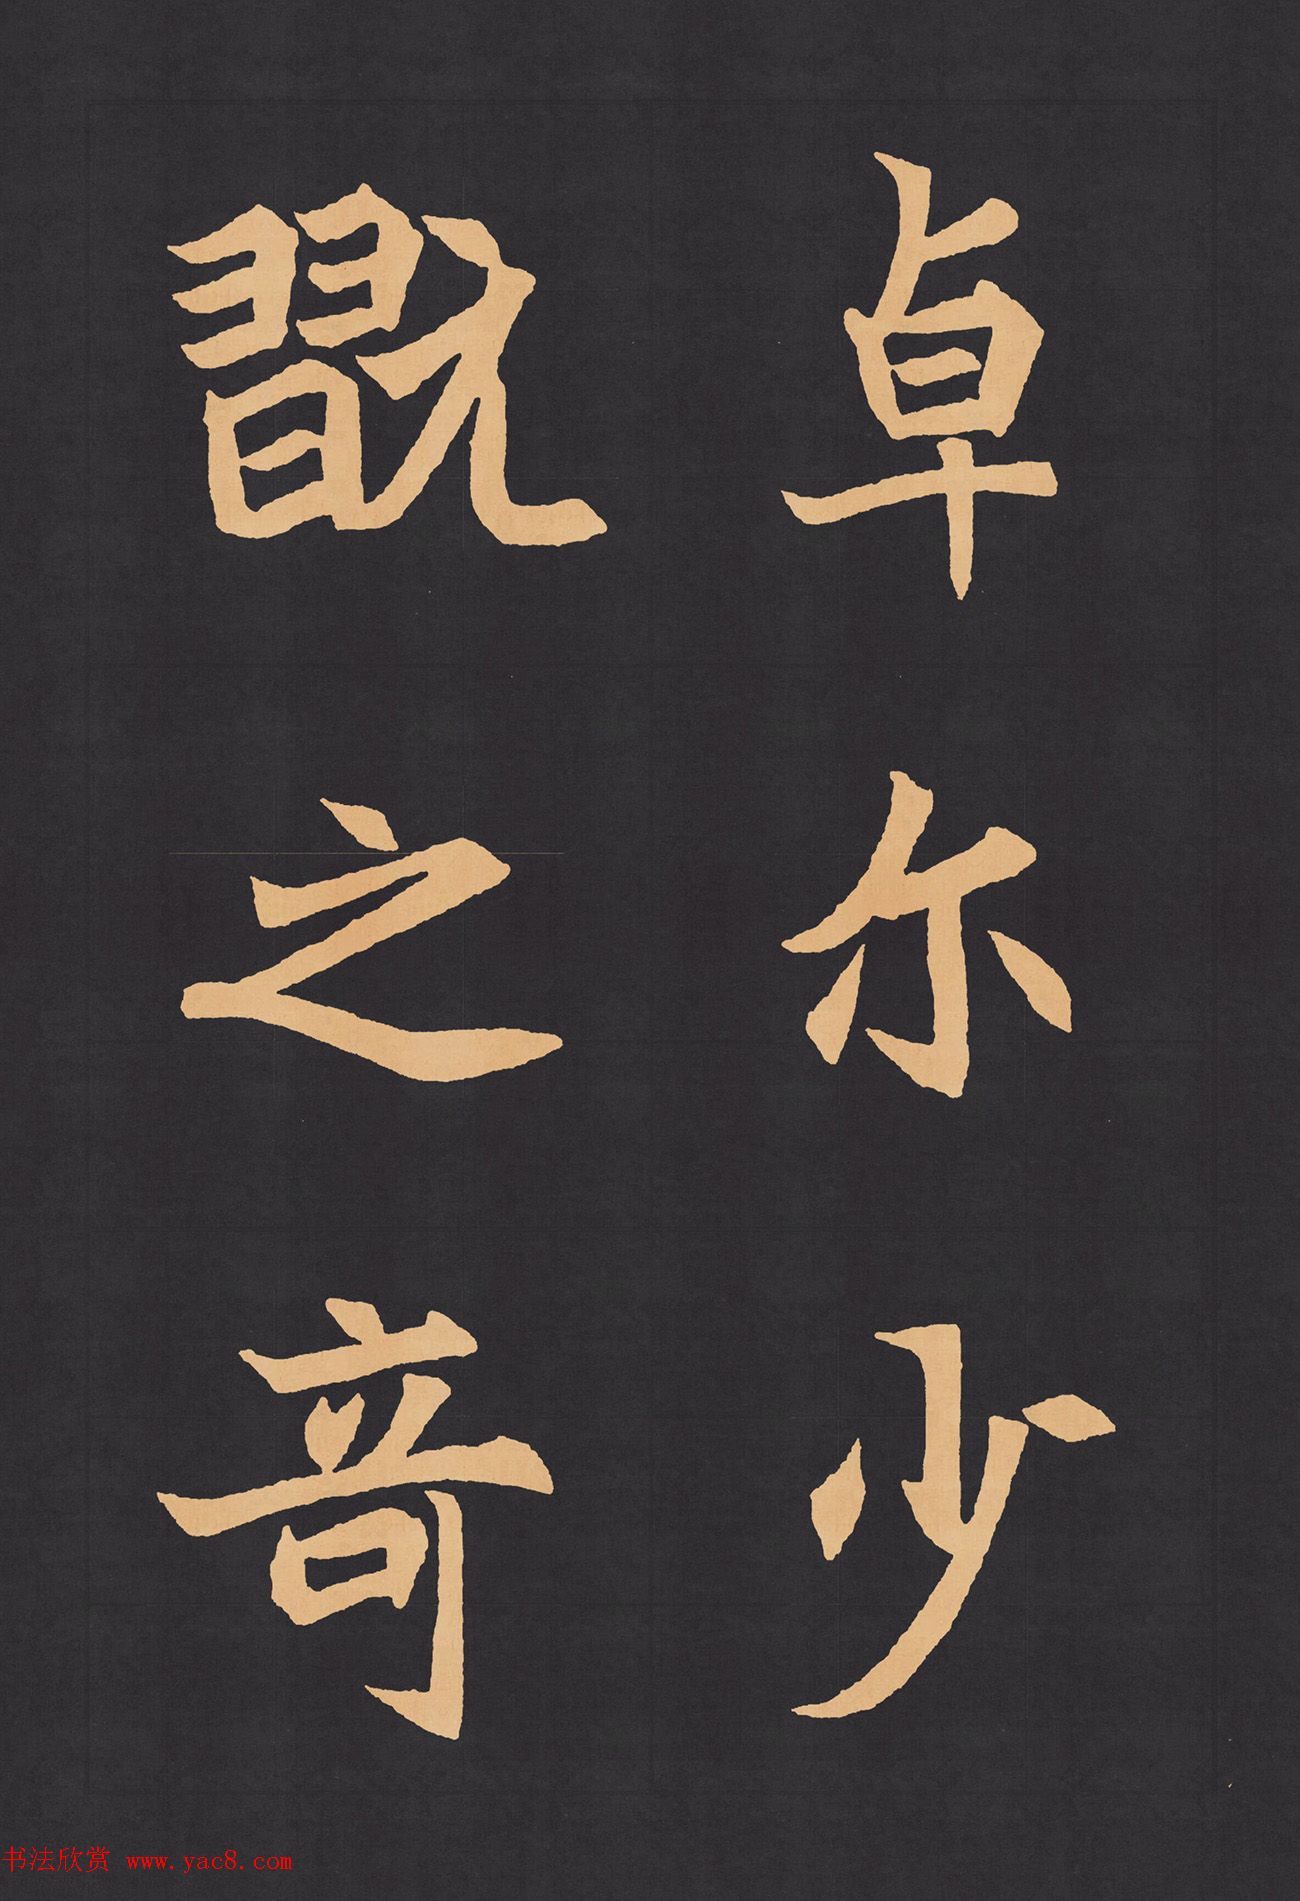 卓尒少
翫之竒
书法欣赏 www.yac8.com